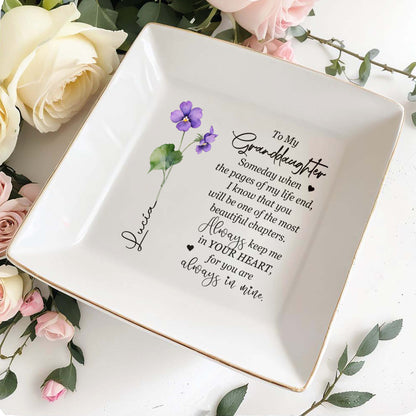 To My
Granddaughter
Someday when
the pages of my life end,
I know that you
will be one of the most
beautiful chapters.
Always keep me
in YOUR HEART,
for you are
always in mine.
Lucia